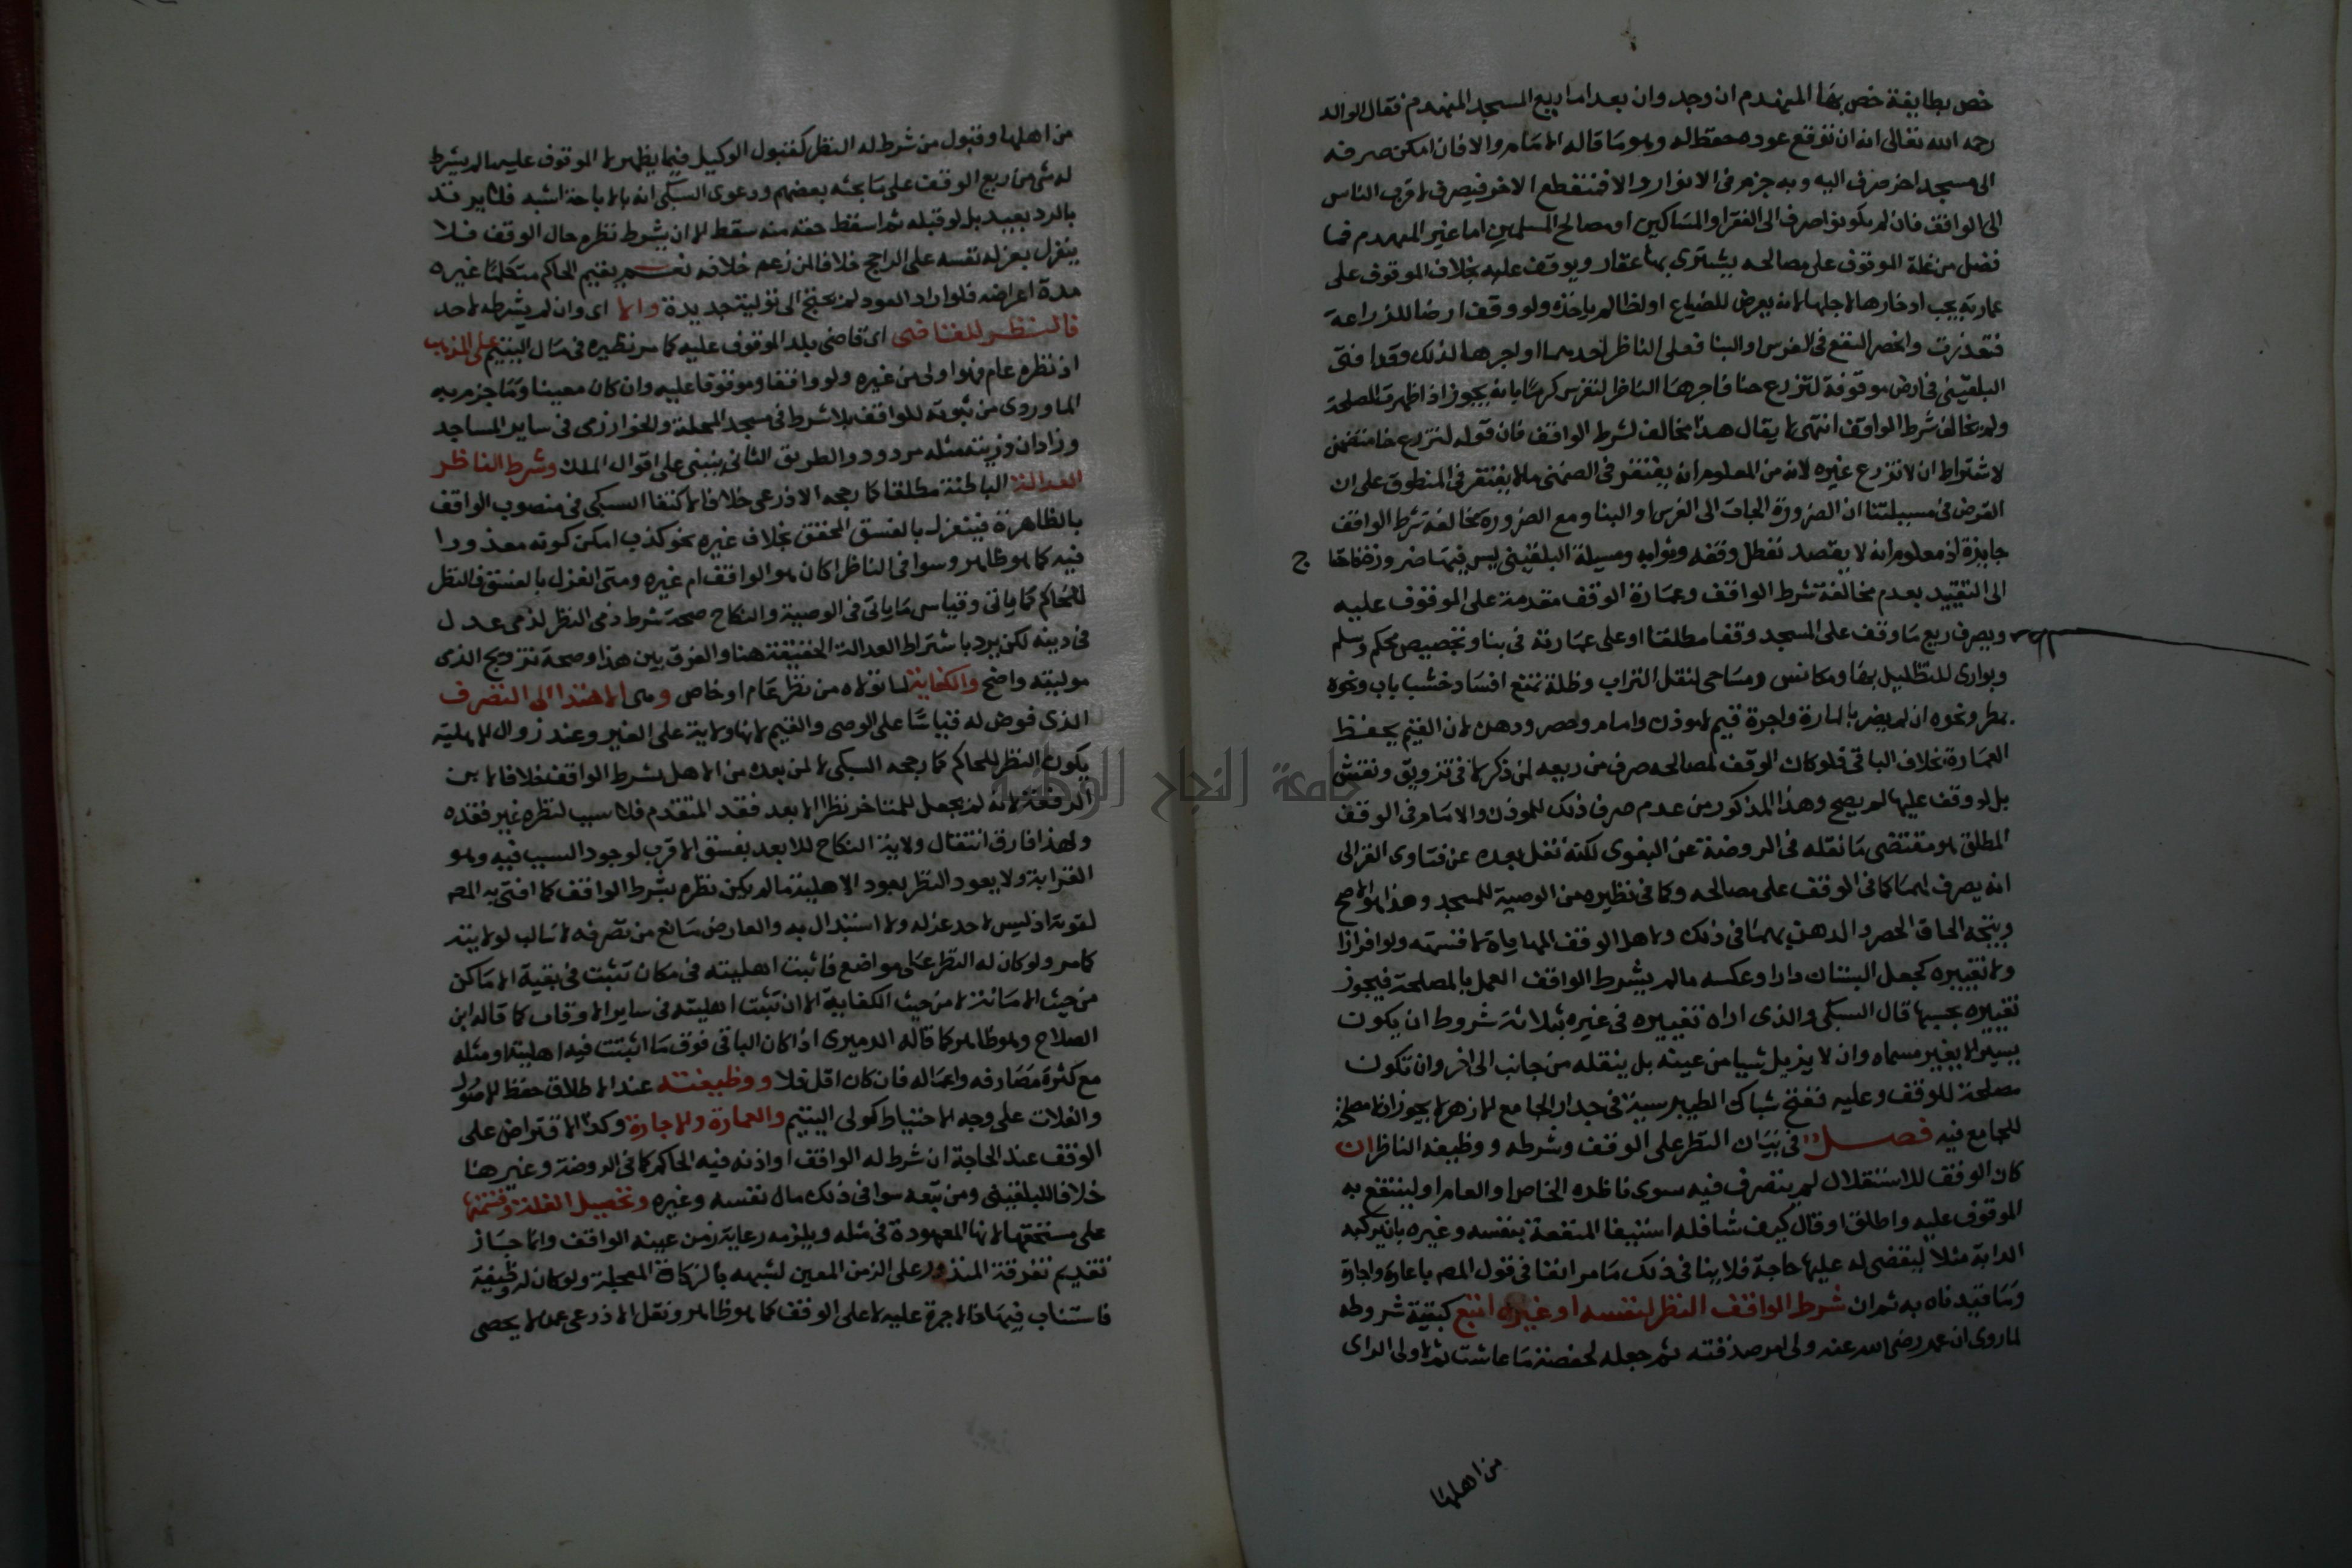 خص بطايفة خص بها المنهدم ان وجد وان بعد اما ريع المسجد المنهدم فقال الوالد
رحمه الله تعالى انه ان توقع عوده حفظ له وهو ما قاله الامام والا فان امكن صرفه
الى مسجد اخر صرف اليه وبه جزم في الانوار والا فمنقطع الاخر فيصرف لاقرب الناس
الى الواقف فان لم يكونوا صرف الى الفقرا والمساكين او مصالح المسلمين اما غير المنهدم فما
فضل من غلة الموقوف على مصالحه يشترى بها عقار ويوقف عليه بخلاف الموقوف على
عمارته يجب ادخارها لاجلها لانه يعرض للضياع او لظالم ياخذه ولو وقف ارضا للزراعة
فتعذرت وانحصر النفع في الغرس والبنا فعلى الناظر احدهما او اجرها لذلك وقد افتى
البلقيني في ارض موقوفة لتزرع حنا فاجرها الناظر لتغرس كرما بانه يجوز اذا ظهرت المصلحة
ولم يخالف شرط الواقف انتهى لا يقال هذا مخالف لشرط الواقف فان قوله لتزرع حنا متضمن
لاشتراط ان لا تزرع غيره لانه من المعلوم انه يغتفر في الضمني ما لا يغتفر في المنطوق على ان
الفرض في مسيلتنا ان الضرورة الجات الى الغرس او البنا ومع الضرورة مخالفة شرط الواقف
جايزة اذ معلوم انه لا يقصد تعطل وقفه وثوابه ومسيلة البلقيني ليس فيها ضرورة فاحتاج
الى التقييد بعدم مخالفة شرط الواقف وعمارة الوقف مقدمة على الموقوف عليه
ويصرف ريع ما وقف على المسجد وقفا مطلقا او على عمارته في بنا وتجصيص محكم وسلم
وبوارى للتظليل بها ومكانس ومساحى لنقل التراب وظلة تمنع افساد خشب باب ونحوه
بمطر ونحوه ان لم يضر بالمارة واجرة قيم لا موذن وامام وحصر ودهن لان القيم يحفظ
العمارة بخلاف الباقي فلو كان الوقف لمصالحه صرف من ريعه لمن ذكر لا في تزويق ونقش
بل لو وقف عليها لم يصح وهذا المذكور من عدم صرف ذلك للموذن والامام في الوقف
المطلق هو مقتضى ما نقله في الروضة عن البغوى لكنه نقل بعده عن فتاوى الغزالى
انه يصرف لهما كما في الوقف على مصالحه وكما في نظيره من الوصية للمسجد وهذا هو الاصح
ويتجه الحاق الحصر والدهن بهما في ذلك ولاهل الوقف المهاياة لا قسمته ولو افرازا
ولا تغييره كجعل البستان دارا وعكسه مالم يشرط الواقف العمل بالمصلحة فيجوز
تغييره بحسبها قال السبكي والذى اراه تغييره في غيره بثلاثة شروط ان يكون
يسيرا لا يغير مسماه وان لا يزيل شيا من عينه بل ينقله من جانب الى اخر وان تكون
مصلحة للوقف وعليه ففتح شباك الطيبرسية في جدار الجامع الازهر لا يجوز اذ لا مصلحة
للجامع فيه فصل في بيان النظر على الوقف وشرطه ووظيفة الناظر ان
كان الوقف للاستقلال لم يتصرف فيه سوى ناظره الخاص او العام او لينتفع به
الموقوف عليه واطلق او قال كيف شا فله استيفا المنفعة بنفسه وغيره بان يركبه
الدابة مثلا ليقضى له عليها حاجة فلا ينافى ذلك ما مر انفا في قول المص باعارة واجارة
وما قيدناه به ثم ان شرط الواقف النظر لنفسه او غيره اتبع كبقية شروطه
لما روى ان عمر رضى الله عنه ولى امر صدقته ثم جعله لحفصة ما عاشت ثم لاولى الراى
من اهلها
من اهلها وقبول من شرط له النظر كقبول الوكيل فيما يظهر لا الموقوف عليه مالم يشرط
له شى من ريع الوقف على ما بحثه بعضهم ودعوى السبكي انه بالاباحة اشبه فلا يرتد
بالرد بعيد بل لو قبله ثم اسقط حقه منه سقط الا ان يشرط نظره حال الوقف فلا
ينعزل بعزله نفسه على الراجح خلافا لمن زعم خلافه نعم يقيم الحاكم متكلما غيره
مدة اعراضه فلو اراد العود لم يحتج الى تولية جديدة والا اى وان لم يشرطه لاحد
فالنظر للقاضى اى قاضى بلد الموقوف عليه كما مر نظيره في مال اليتيم على المذهب
اذ نظره عام فهو اولى من غيره ولو واقفا وموقوفا عليه وان كان معينا وما جزم به
الماوردى من ثبوته للواقف بلا شرط في مسجد المحلة والخوارزمى في ساير المساجد
وزاد ان ذريته مثله مردود والطريق الثاني ينبنى على اقوال الملك وشرط الناظر
العدالة الباطنة مطلقا كما رجحه الاذرعى خلافا لاكتفا السبكي في منصوب الواقف
بالظاهرة فينعزل بالفسق المحقق بخلاف غيره نحو كذب امكن كونه معذورا
فيه كما هو ظاهر وسوا في الناظر اكان هو الواقف ام غيره ومتى انعزل بالفسق فالنظر
للحاكم كما ياتي وقياس ما ياتي في الوصية والنكاح صحة شرط ذمى النظر لذمى عدل
في دينه لكن يرد باشتراط العدالة الحقيقية هنا والفرق بين هذا وصحة تزويج الذمى
موليته واضح والكفاية لما تولاه من نظر عام او خاص وهى الاهتدا الى التصرف
الذى فوض له قياسا على الوصى والقيم لانها ولاية على الغير وعند زوال الاهلية
يكون النظر للحاكم كما رجحه السبكي لا لمن بعده من الاهل بشرط الواقف خلافا لابن
الرفعة لانه لم يجعل للمتاخر نظرا الا بعد فقد المتقدم فلا سبب لنظره غير فقده
ولهذا فارق انتقال ولاية النكاح للابعد بفسق الاقرب لوجود السبب فيه وهو
القرابة ولا يعود النظر بعود الاهلية مالم يكن نظره بشرط الواقف كما افتى به المص
لقوته اذ ليس لاحد عزله ولا استبدال به والعارض مانع من تصرفه لا سالب لولايته
كما مر ولو كان له النظر على مواضع فاثبت اهليته في مكان تثبت في بقية الاماكن
من حيث الامانة لا من حيث الكفاية الا ان تثبت اهليته في ساير الاوقاف كما قاله ابن
الصلاح وهو ظاهر كما قاله الدميرى اذا كان الباقى فوق ما اثبتت فيه اهليته او مثله
مع كثرة مصارفه واعماله فان كان اقل فلا ووظيفته عند الاطلاق حفظ الاصول
والغلات على وجه الاحتياط كولى اليتيم والعمارة والاجارة وكذا الاقتراض على
الوقف عند الحاجة ان شرط له الواقف او اذنه فيه الحاكم كما في الروضة وغيرها
خلافا للبلقيني ومن تبعه سوا في ذلك مال نفسه وغيره وتحصيل الغلة وقسمتها
على مستحقها لانها المعهودة في مثله ويلزمه رعاية زمن عينه الواقف وانما جاز
تقديم تفرقة المنذور على الزمن المعين لشبهه بالزكاة المعجلة ولو كان له وظيفة
فاستناب فيها فالاجرة عليه لا على الوقف كما هو ظاهر ونقل الاذرعى عمن لا يحصى
جامعة النجاح الوطنية